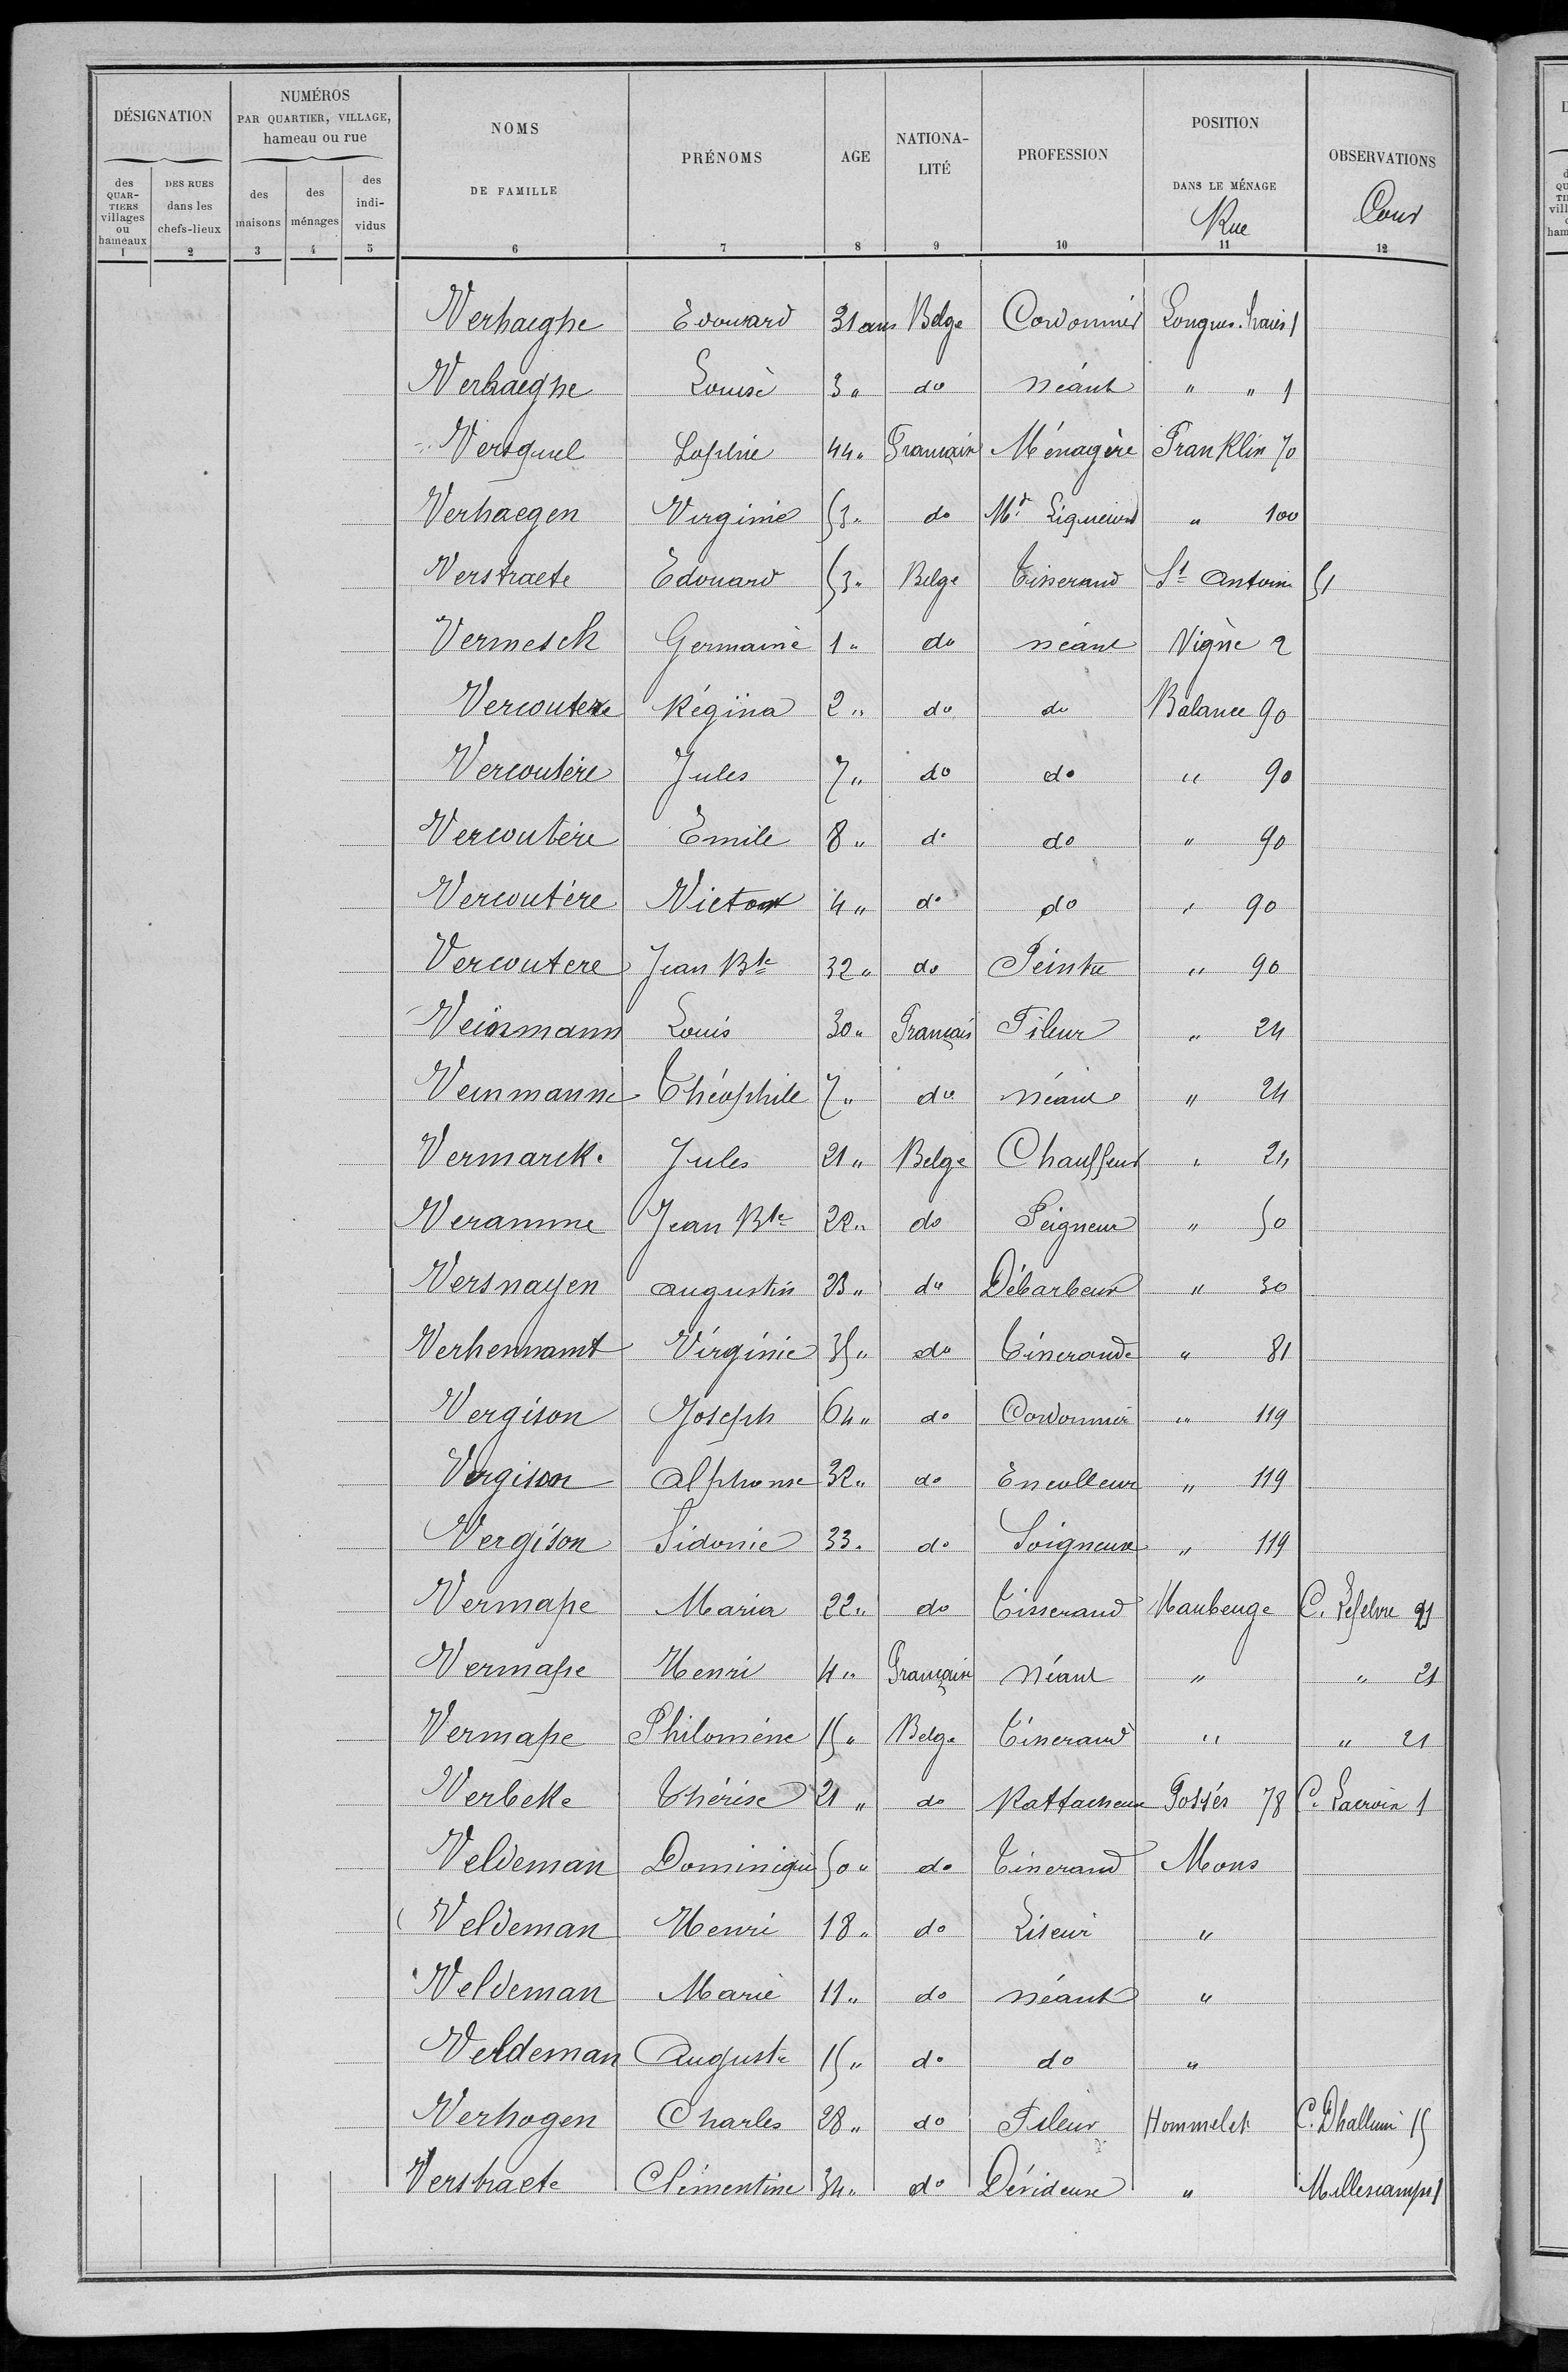 DÉSIGNATION
NUMÉROS
PAR QUARTIER, VILLAGE,
hameau ou rue
NOMS
DE FAMILLE
PRÉNOMS
AGE
NATIONA-
LITÉ
PROFESSION
POSITION
DANS LE MÉNAGE
Rue
OBSERVATIONS
Cour
des
QUAR-
TIERS
villages
ou
hameaux
DES RUES
dans les
chefs-lieux
des
maisons
des
ménages
des
indi-
vidus
1 2 3 4 5 6 7 8 9 10 11 12
Verhaeghe Edouard 31 ans Belge Cordonnier Longues haies 1
Verhaeghe Louise 3 " do néant " " 1
Versquel Sophie 44 " Française Ménagère Franklin 70
Verhaegen Virginie 53 " do Mde Liqueurs " 100
Verstraete Edouard 53 " Belge Tisserand St Antoine 51
Vermesch Germaine 1 " do néant Vigne 2
Vercoutere Régina 2 " do do Balance 90
Vercoutère Jules 7 " do do " 90
Vercoutère Emile 8 " do do " 90
Vercoutère Victor 4 " do do " 90
Vercoutere Jean Bte 32 " do Peintre " 90
Veinmann Louis 30 " Français Fileur " 24
Veinmann Théophile 7 " do néant " 24
Vermarck Jules 21 " Belge Chauffeur " 24
Veramme Jean Bte 22 " do Peigneur " 50
Versnayen Augustin 23 " do Débarbeur " 30
Verhennamt Virginie 35 " do Tisserande " 81
Vergison Joseph 64 " do Cordonnier " 119
Vergison Alphonse 32 " do Encolleur " 119
Vergison Sidonie 33 " do Soigneuse " 119
Vermape Maria 22 " do Tisserand Maubeuge C. Lefebvre 21
Vermape Henri 4 " Française Néant " " 21
Vermape Philomène 15 " Belge Tisserand " " 21
Verbeke Thérèse 21 " do Rattacheuse Fossés 78 C. Lacroix 1
Veldeman Dominique 50 " do Tisserand Mons
Veldeman Henri 18 " do Liseur "
Veldeman Marie 11 " do néant "
Veldeman Auguste 15 " do do "
Verhogen Charles 28 " do Fileur Hommelet C. Dhalluin 15
Verstraete Clémentine 34 " do Dévideuse " Millescamps 1